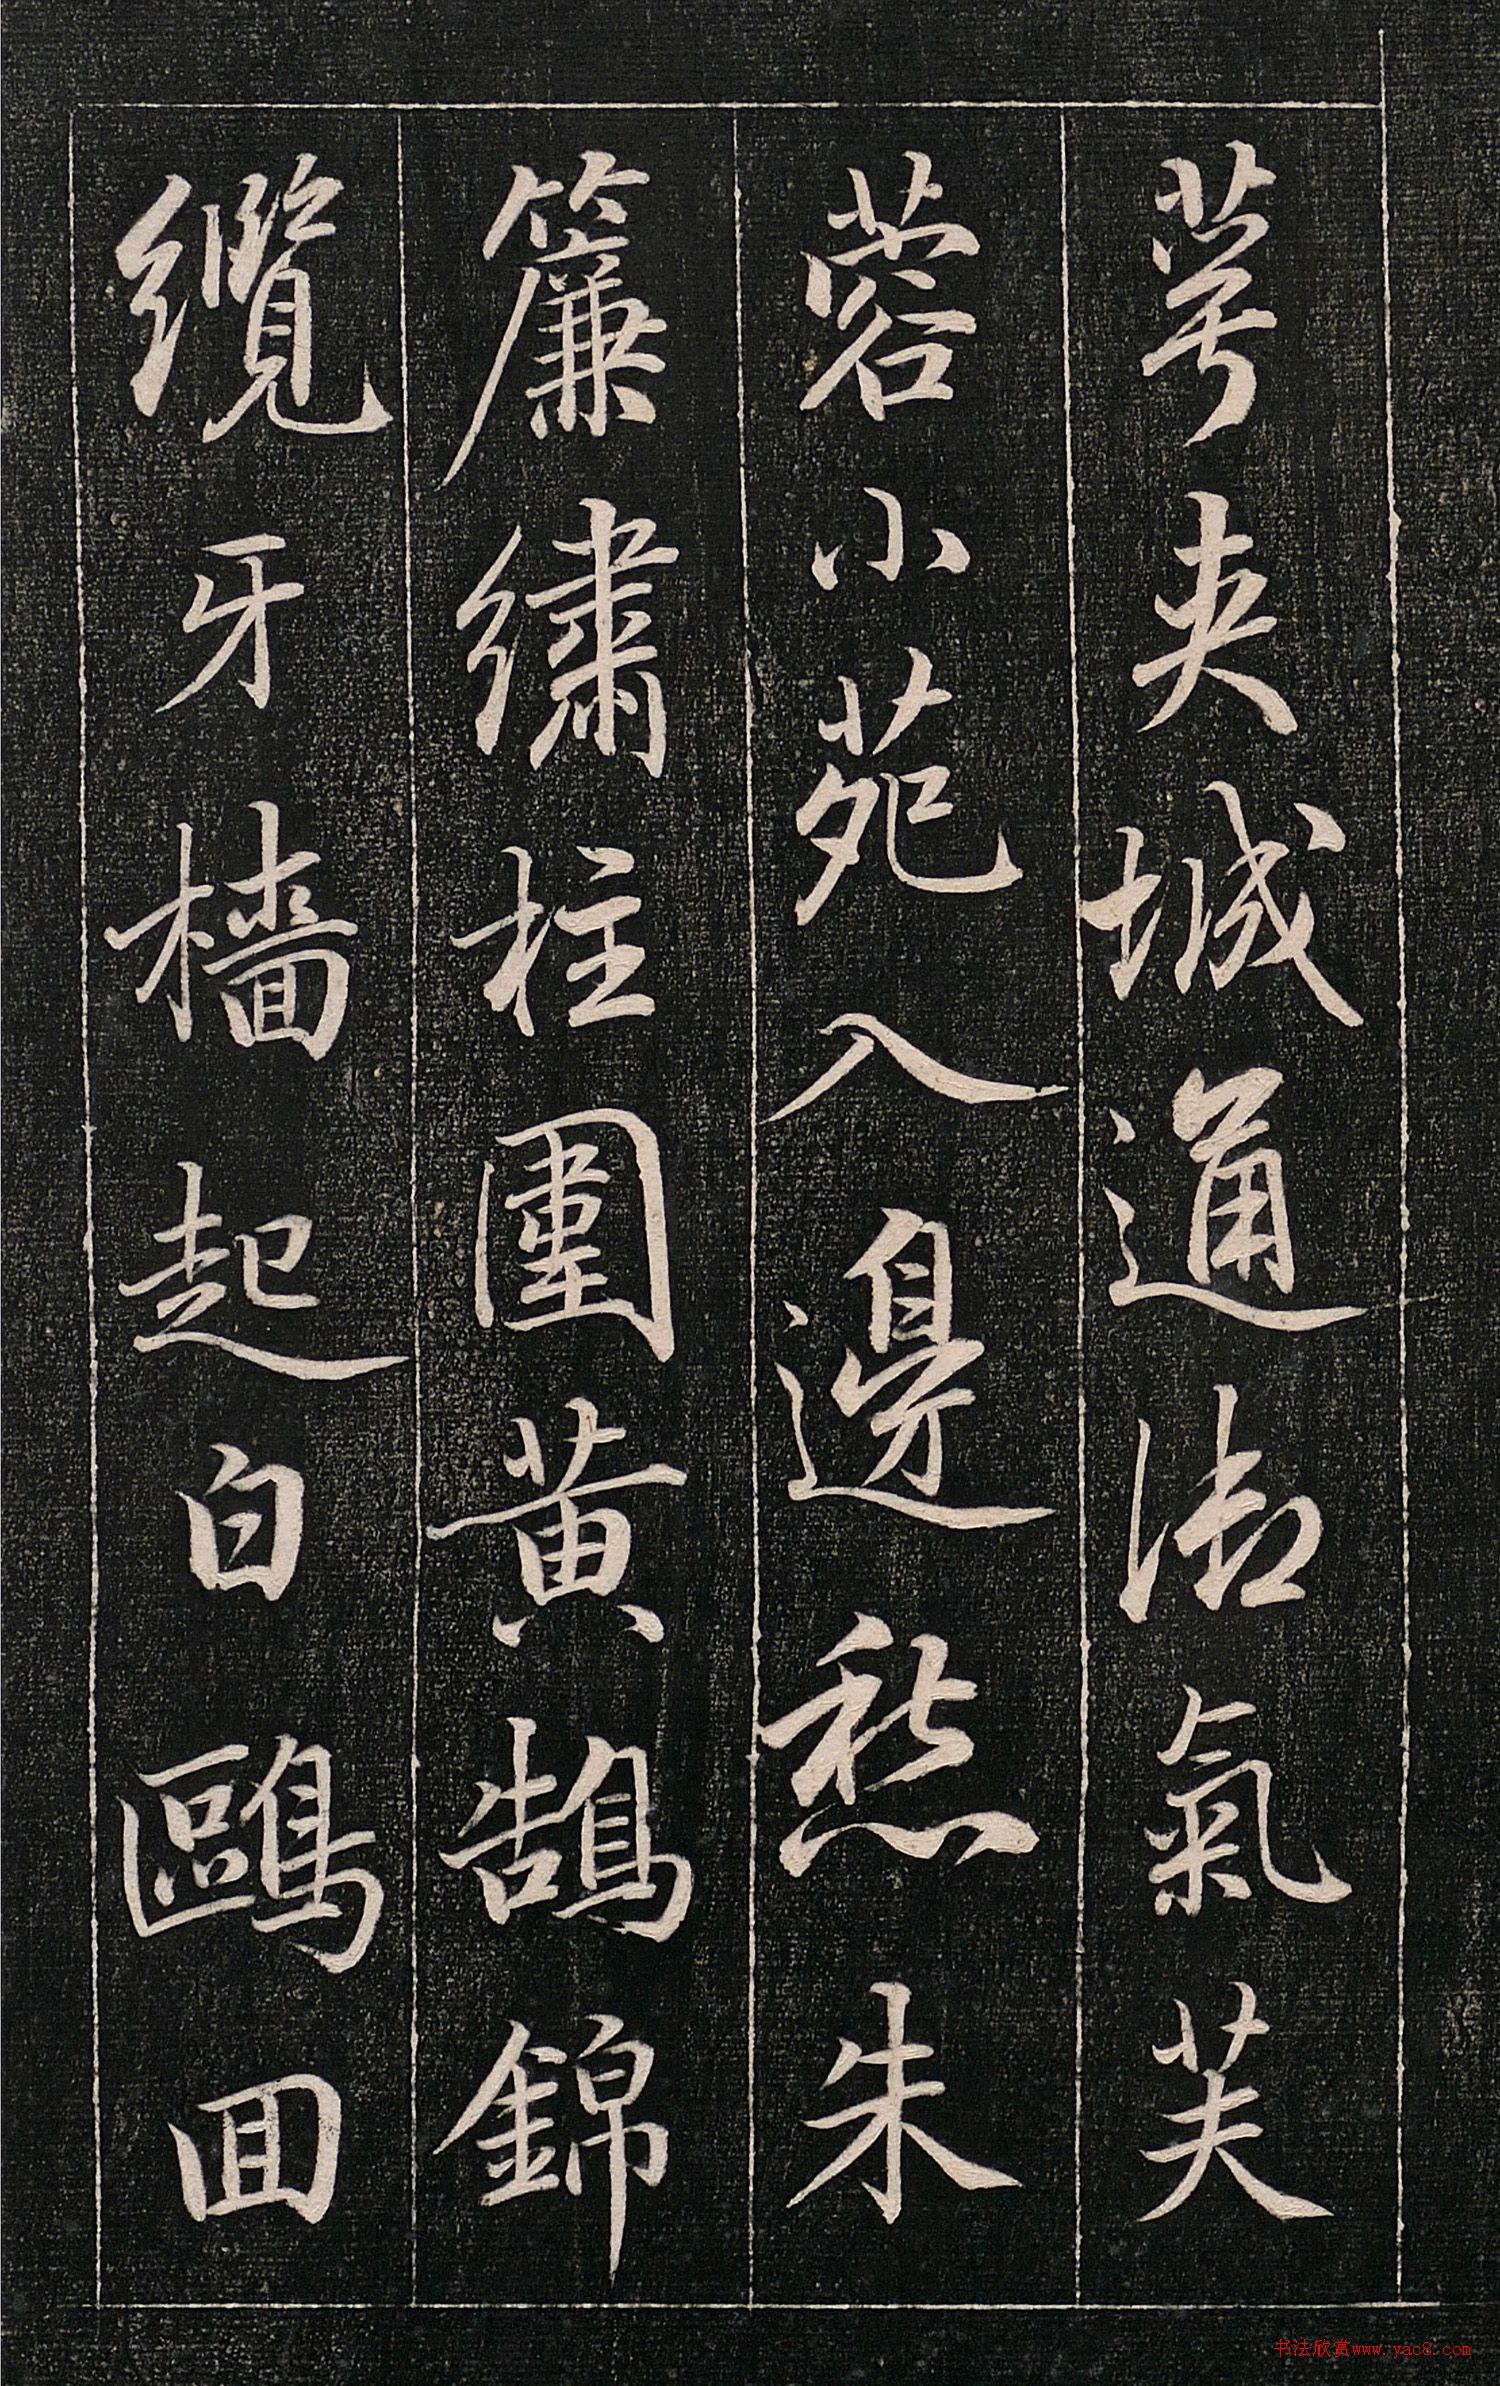 萼夹城通御氣芙
蓉小苑入邊愁朱
簾繡柱圍黄鵠錦
纜牙檣起白鷗回
书法欣赏www.yac8.com